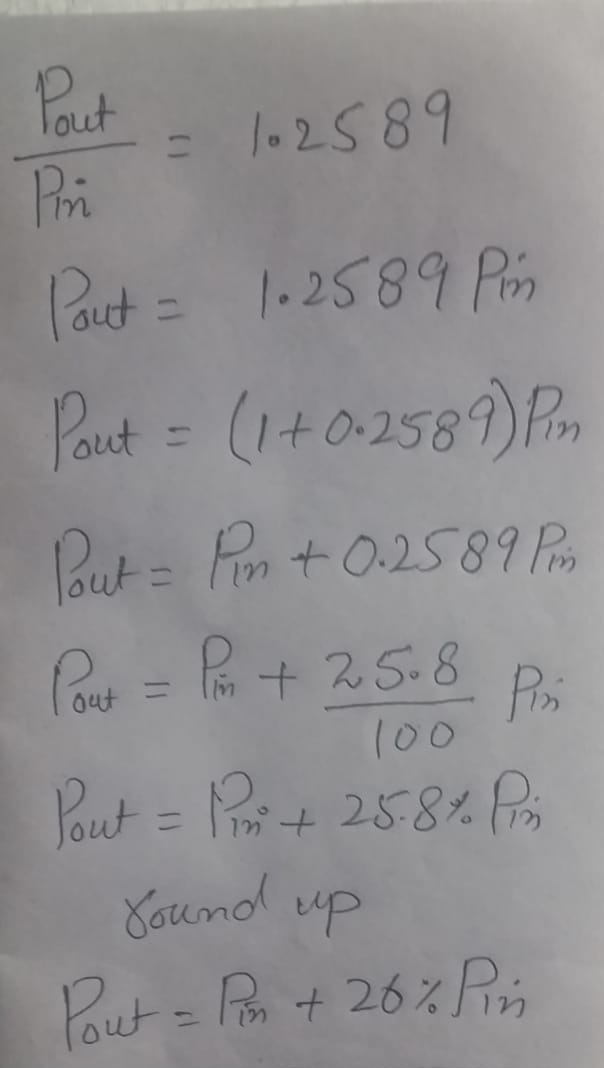 Pout / Pin = 1.2589
Pout = 1.2589 Pin
Pout = (1+0.2589) Pin
Pout = Pin + 0.2589 Pin
Pout = Pin + 25.8 / 100 Pin
Pout = Pin + 25.8% Pin
round up
Pout = Pin + 26% Pin